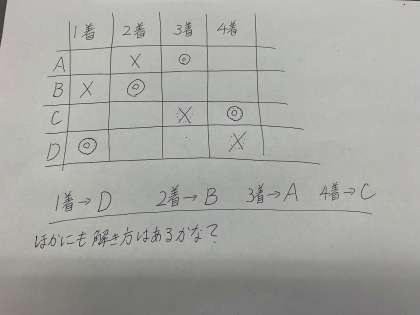 1着 2着 3着 4着
A × ◎
B × ◎
C × ◎
D ◎ ×
1着→D 2着→B 3着→A 4着→C
ほかにも解き方はあるかな?